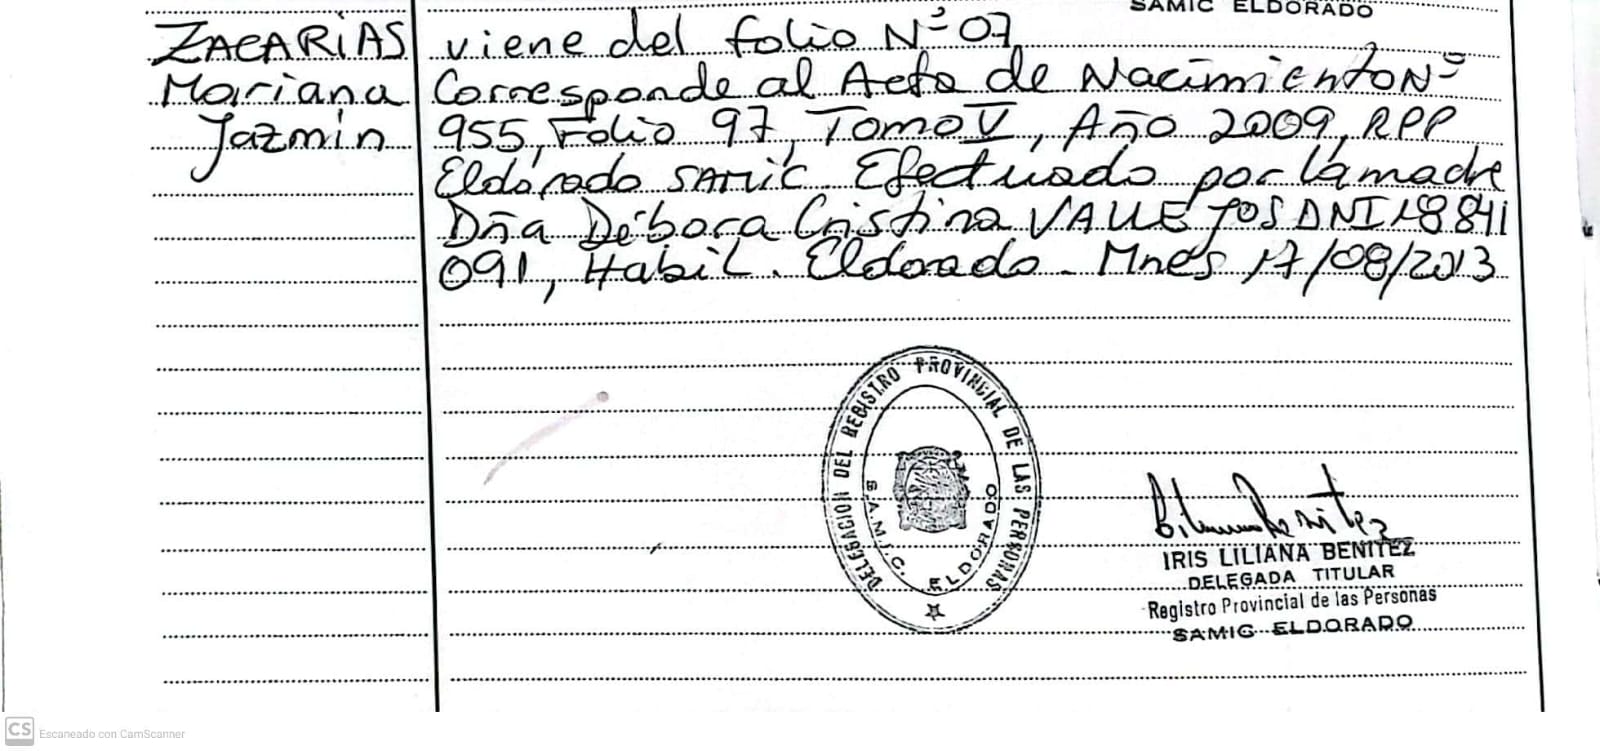 SAMIC ELDORADO
ZACARIAS
Mariana
Jazmin
viene del folio Nº 07
Corresponde al Acta de Nacimiento Nº
955, Folio 97, Tomo V, Año 2009, RPP
Eldorado SAMIC. Efectuado por la madre
Dña Débora Cristina VALLEJOS DNI 18841
091, Habil. Eldorado - Mnes 17/08/2013
DELEGACION DEL REGISTRO PROVINCIAL DE LAS PERSONAS
S.A.M.I.C. ELDORADO
IRIS LILIANA BENITEZ
DELEGADA TITULAR
Registro Provincial de las Personas
SAMIC ELDORADO
CS Escaneado con CamScanner